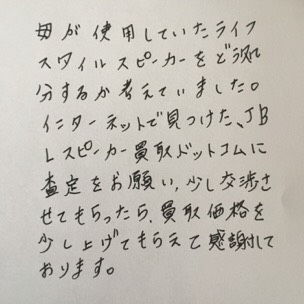 母が使用していたライフ
スタイルスピーカーをどう処
分するか考えていました。
インターネットで見つけた、JB
Lスピーカー買取ドットコムに
査定をお願い、少し交渉さ
せてもらったら、買取価格を
少し上げてもらえて感謝して
おります。